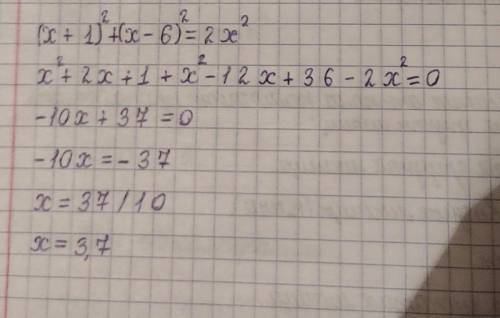 (x + 1)² + (x - 6)² = 2x²
x² + 2x + 1 + x² - 12x + 36 - 2x² = 0
-10x + 37 = 0
-10x = -37
x = 37 / 10
x = 3,7